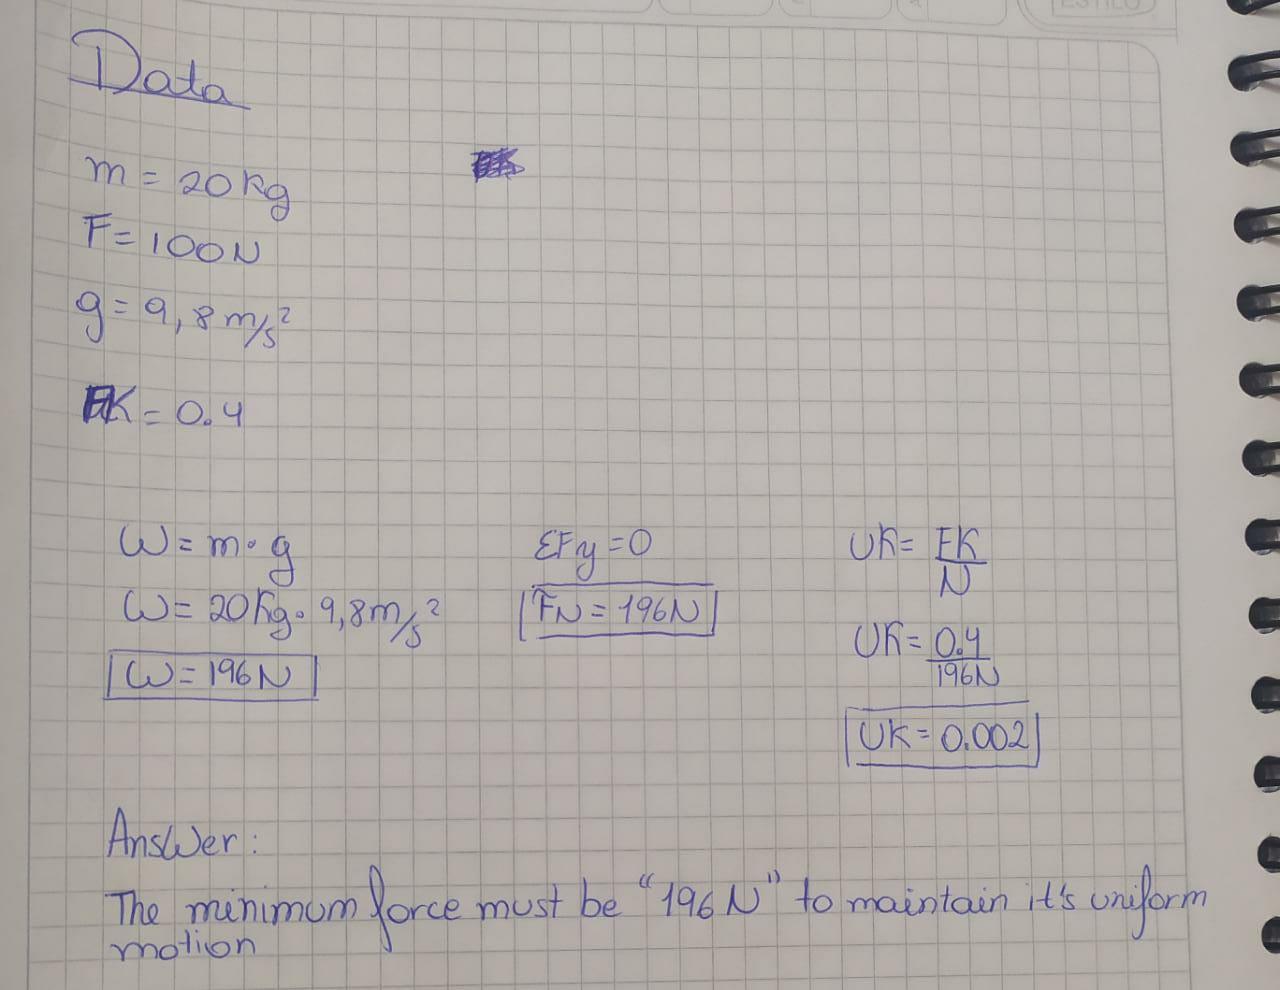 Data
m = 20kg
F = 100N
g = 9,8 m/s²
FK = 0.4
W = m · g
W = 20kg · 9,8 m/s²
W = 196N
ΣFy = 0
FN = 196N
UK = FK/N
UK = 0.4/196N
UK = 0.002
Answer:
The minimum force must be "196N" to maintain it's uniform
motion